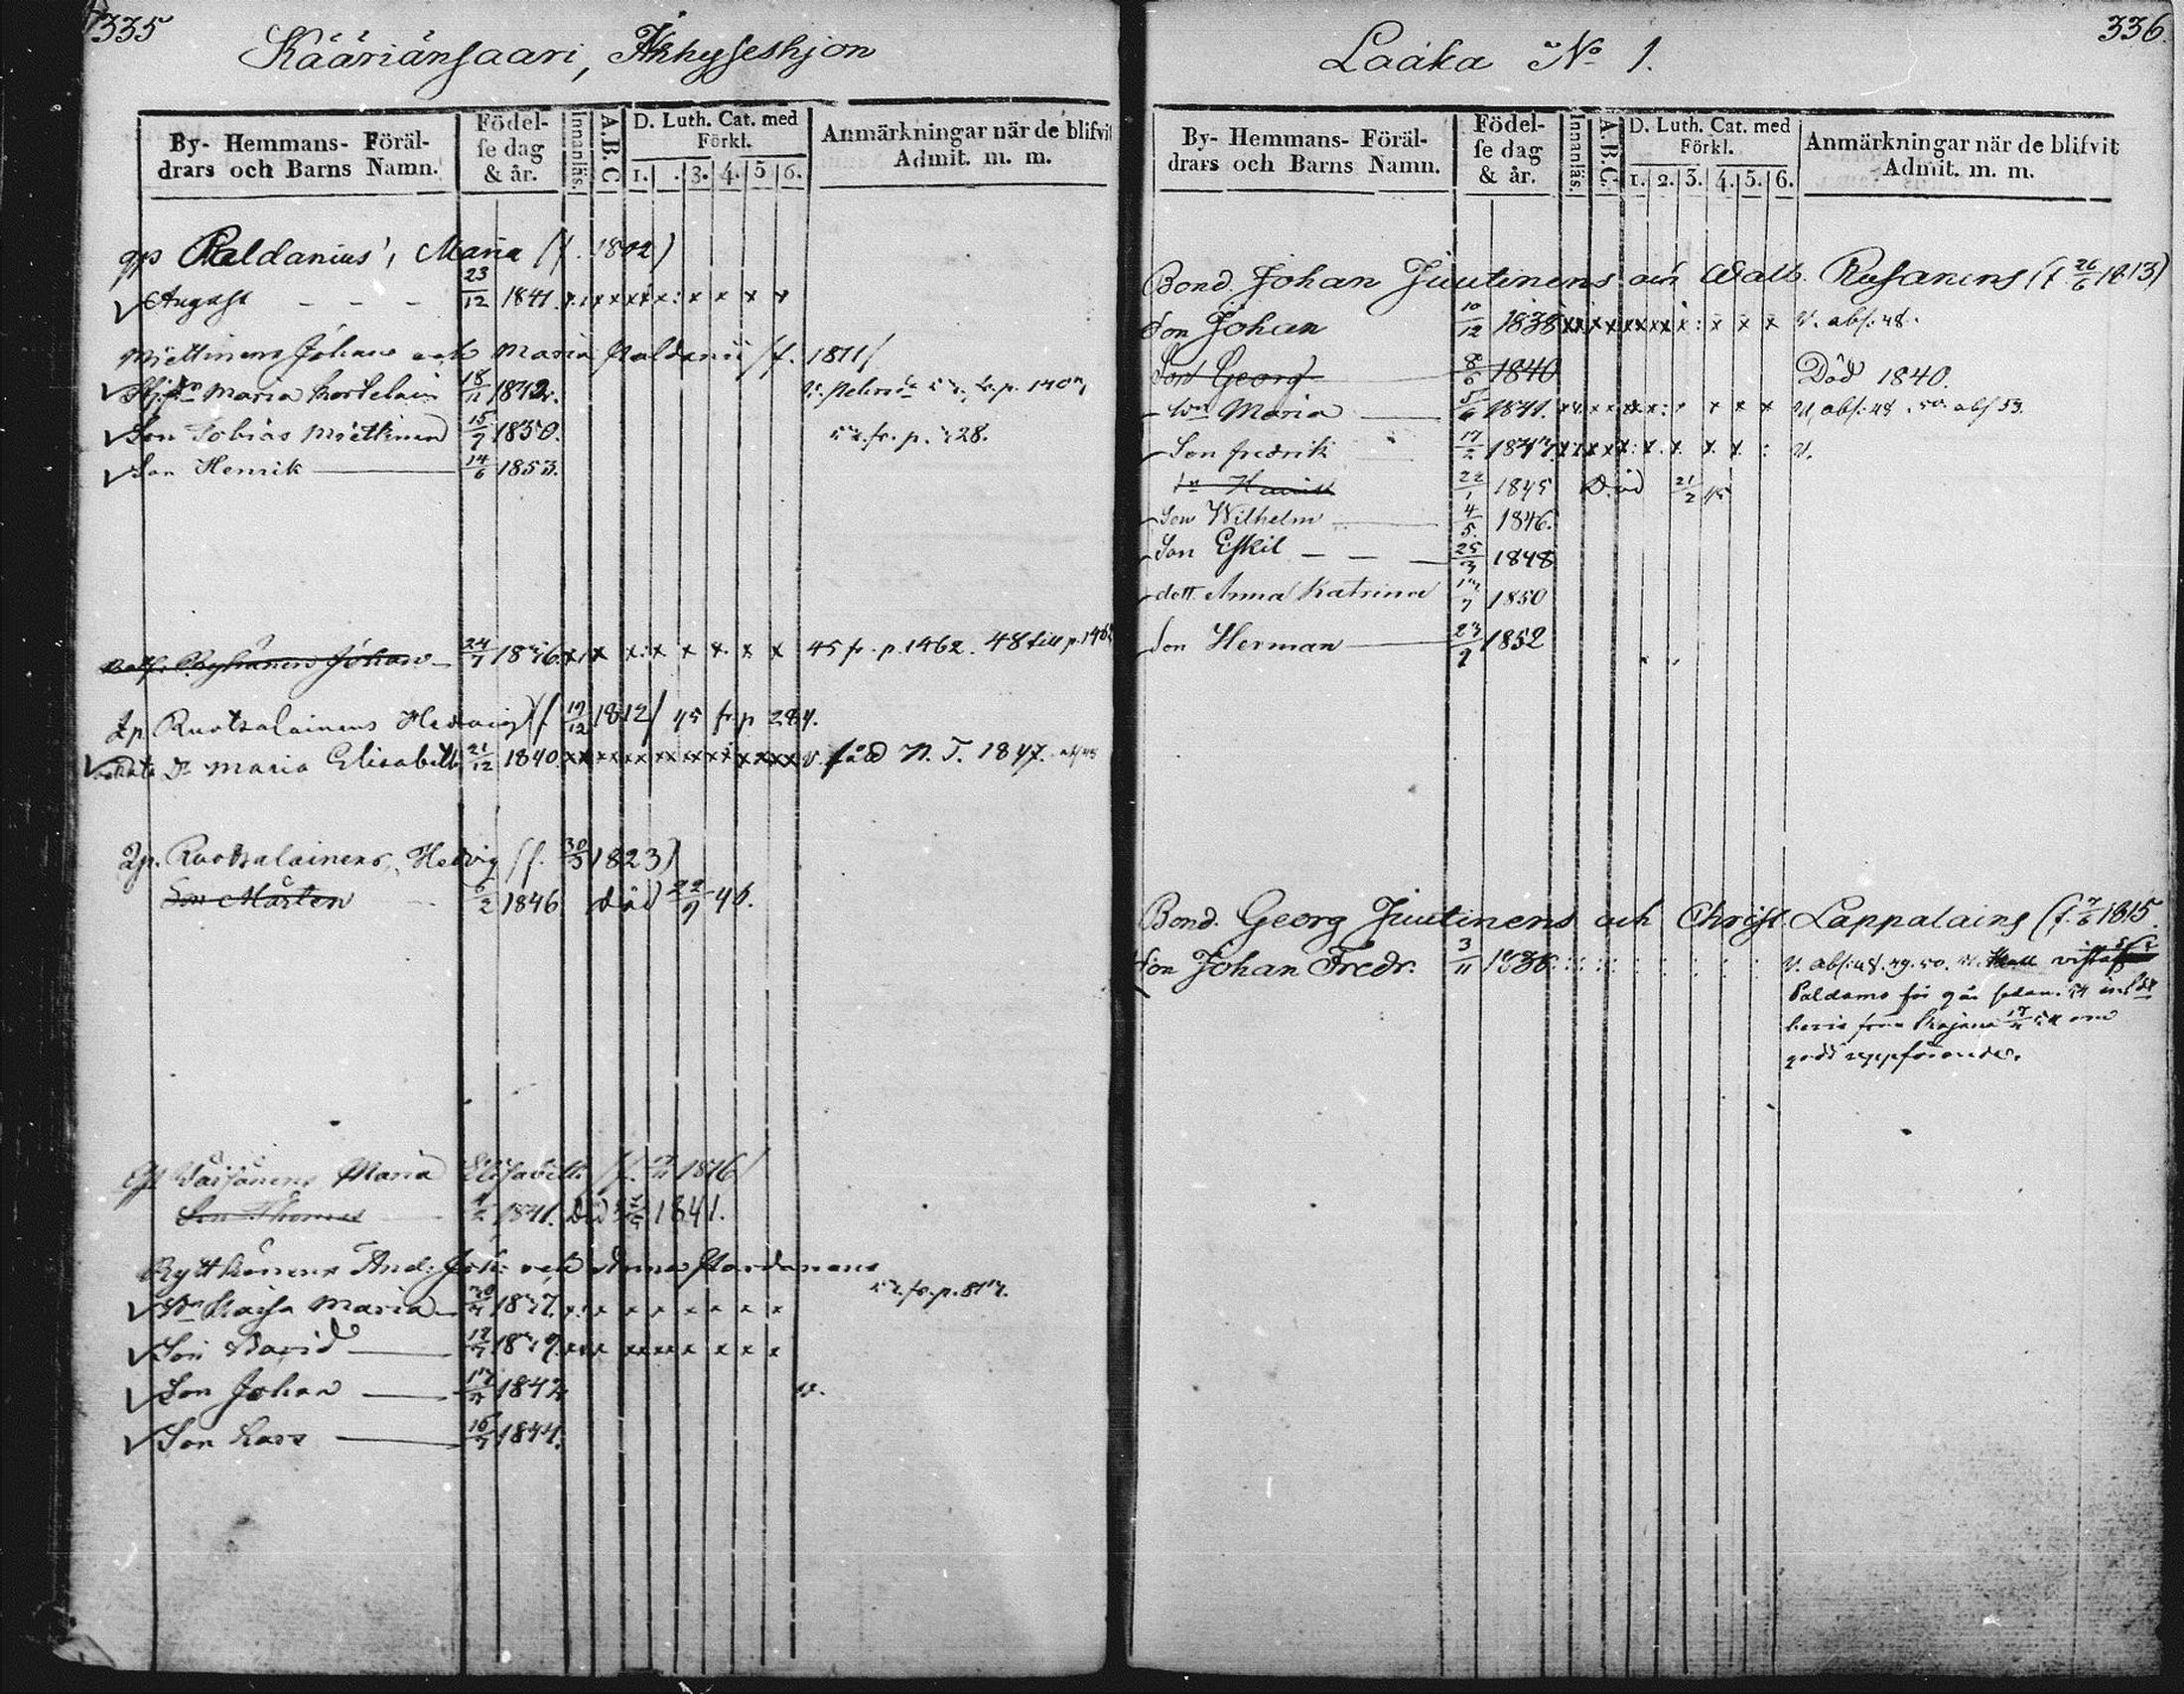 335
Kääriänsaari, Inhyseshjon
By- Hemmans- Föräl-
drars och Barns Namn.
Födel-
se dag
& år.
Innanläs.
A.B.C
D. Luth. Cat. med
Förkl.
1. . 3. 4. 5 6.
Anmärkningar när de blifvit
Admit. m. m.
Paldanius', Maria (f. 1802)
August - - - 23/12 1841.
Miettinens Johans och Maria Paldanii (f. 1811)
Maria Kortelain 18/11 1842.
Son Tobias Miettinen 15/7 1850. fr. p. 28.
Son Henrik 14/6 1853.
Johan 24/7 1836. 45 fr. p. 1462. 48 till p. 146
Ip. Ruotsalainens Hedvig (f. 19/12 1812) 45 fr. p. 284.
Dr Maria Elisabeth 21/12 1840. v. fåd N. T. 1847.
Ip. Ruotsalainens, Hedvig (f. 30/3 1823)
Son Mårten 5/2 1846 död 22/9 46.
Väisänens Maria Elisabeth
Son Thomas 1841. Död 1841.
Rytkönens And: Joh: och Anna Pardanens
Dr Kaisa Maria 1837. fr. p. 817.
Son David 1839.
Son Johan 1842. v.
Son Lars 16/7 1844.
336.
Laaka No 1.
By- Hemmans- Föräl-
drars och Barns Namn.
Födel-
se dag
& år.
Innanläs.
A.B.C.
D. Luth. Cat. med
Förkl.
1. 2. 3. 4. 5. 6.
Anmärkningar när de blifvit
Admit. m. m.
Bond. Johan Juutinens och Walb. Rusanens (f. 26/6 1813)
Son Johan 10/12 1838 v. abs: 48.
Son Georg 8/5 1840 Död 1840.
Maria 5/6 1841. v. abs: 48. 50. abs 53.
Son fredrik 17/2 1843. v.
Henrik 22/1 1845 Död 21/2 45
Son Wilhelm 4/5 1846.
Son Eskil - - 25/3 1848
dott. Anna Katrina 1850
Son Herman 23/9 1852
Bond. Georg Juutinens och Christ. Lappalains (f. 1815
Son Johan Fredr. 3/11 1838. v. abs: 48. 49. 50.
Paldamo för
från Kajana 54 om
godt uppförande.